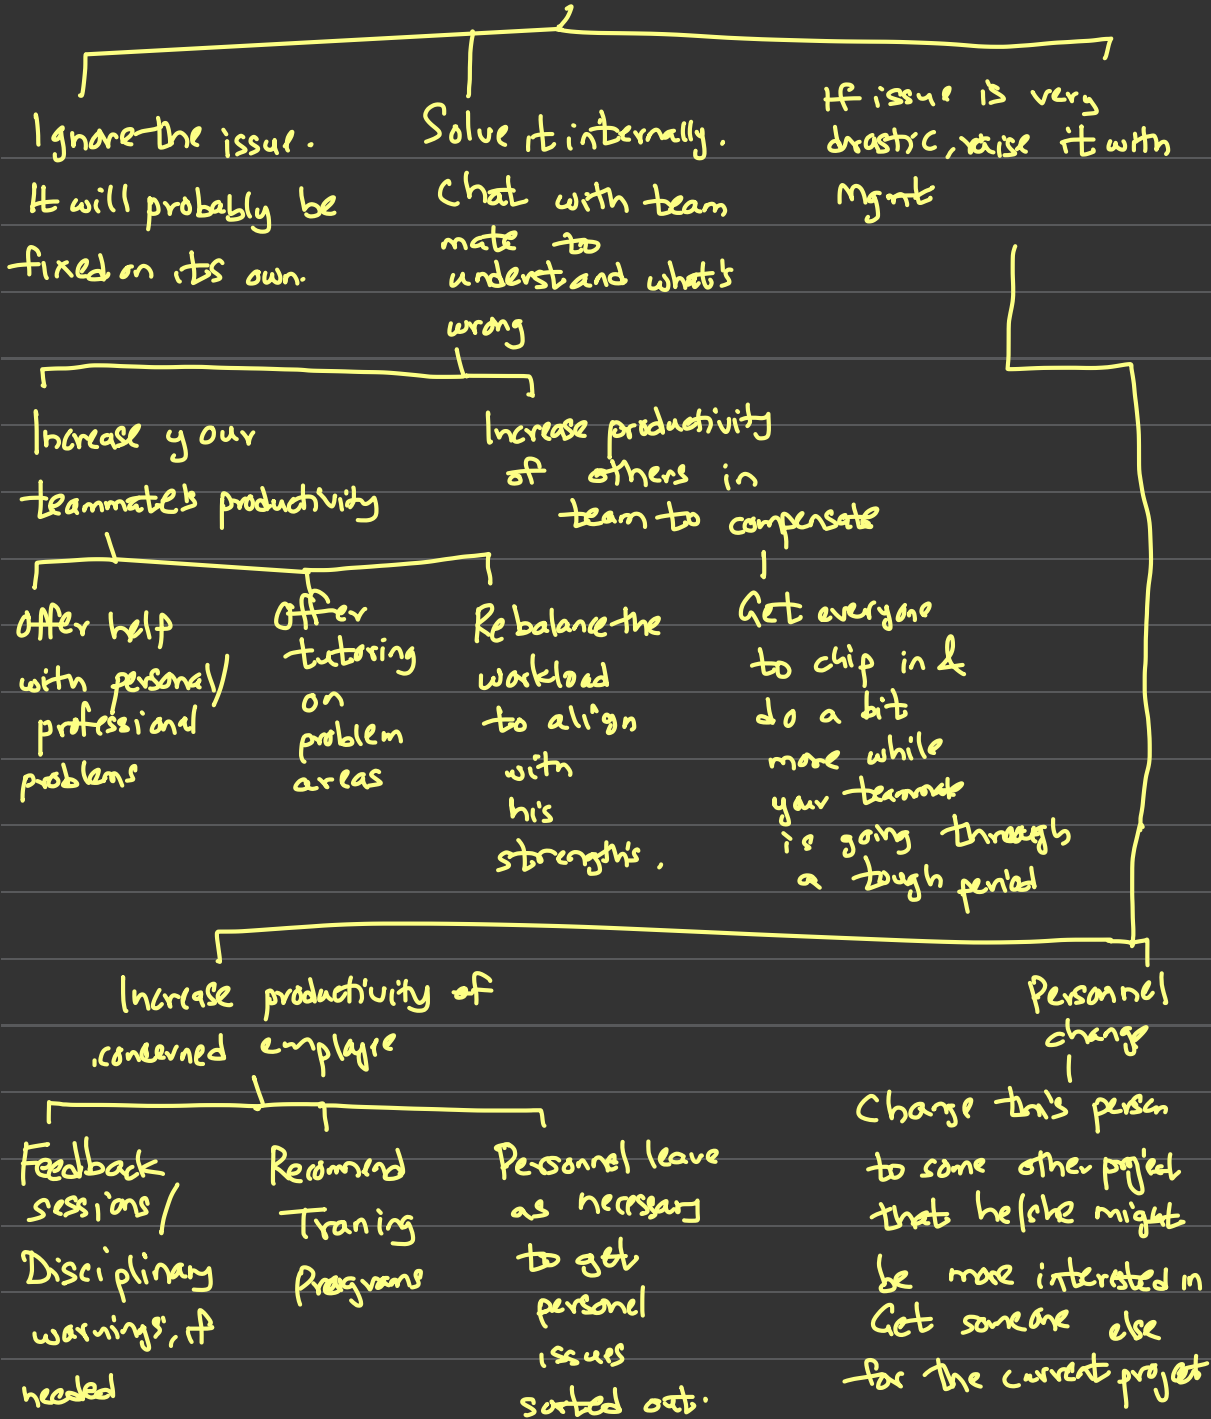 Ignore the issue.
It will probably be
fixed on its own.
Solve it internally.
Chat with team
mate to
understand what's
wrong
If issue is very
drastic, raise it with
Mgmt
Increase your
teammate's productivity
Increase productivity
of others in
team to compensate
Offer help
with personal/
professional
problems
Offer
tutoring
on
problem
areas
Rebalance the
workload
to align
with
his
strengths.
Get everyone
to chip in &
do a bit
more while
your teammate
is going through
a tough period
Increase productivity of
concerned employee
Personnel
change
Feedback
sessions/
Disciplinary
warnings, if
needed
Recommend
Traning
Programs
Personnel leave
as necessary
to get
personel
issues
sorted out.
Change this person
to some other project
that he/she might
be more interested in
Get someone else
for the current project